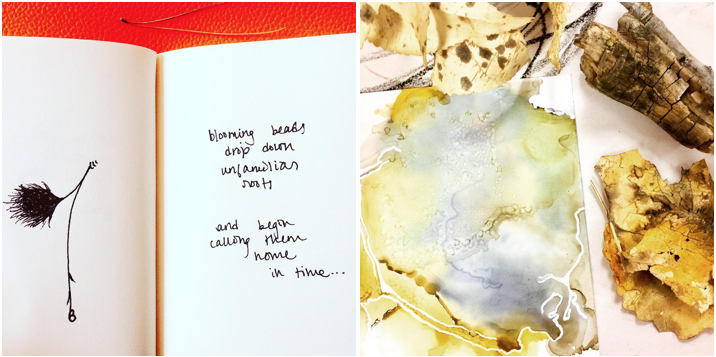 blooming beads
drop down
unfamiliar
roots
and begin
calling them
home
in time...